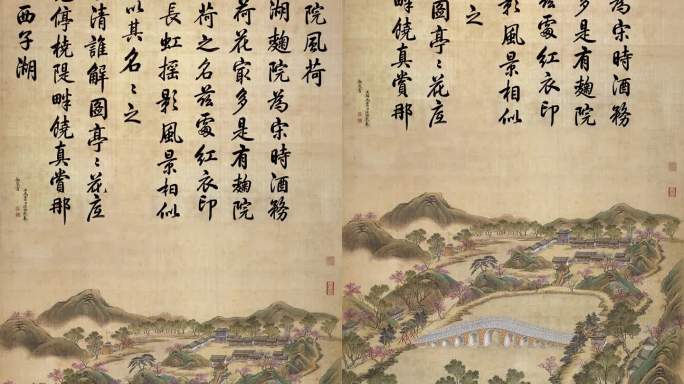 院風荷
湖麹院為宋時酒務
荷花冣多是有麹院
荷之名茲處紅衣印
長虹搖影風景相似
以其名〻之
清誰解圖亭〻花底
停橈隄畔饒真賞那
西子湖
為宋時酒務
多是有麹院
茲處紅衣印
影風景相似
之
圖亭〻花底
畔饒真賞那